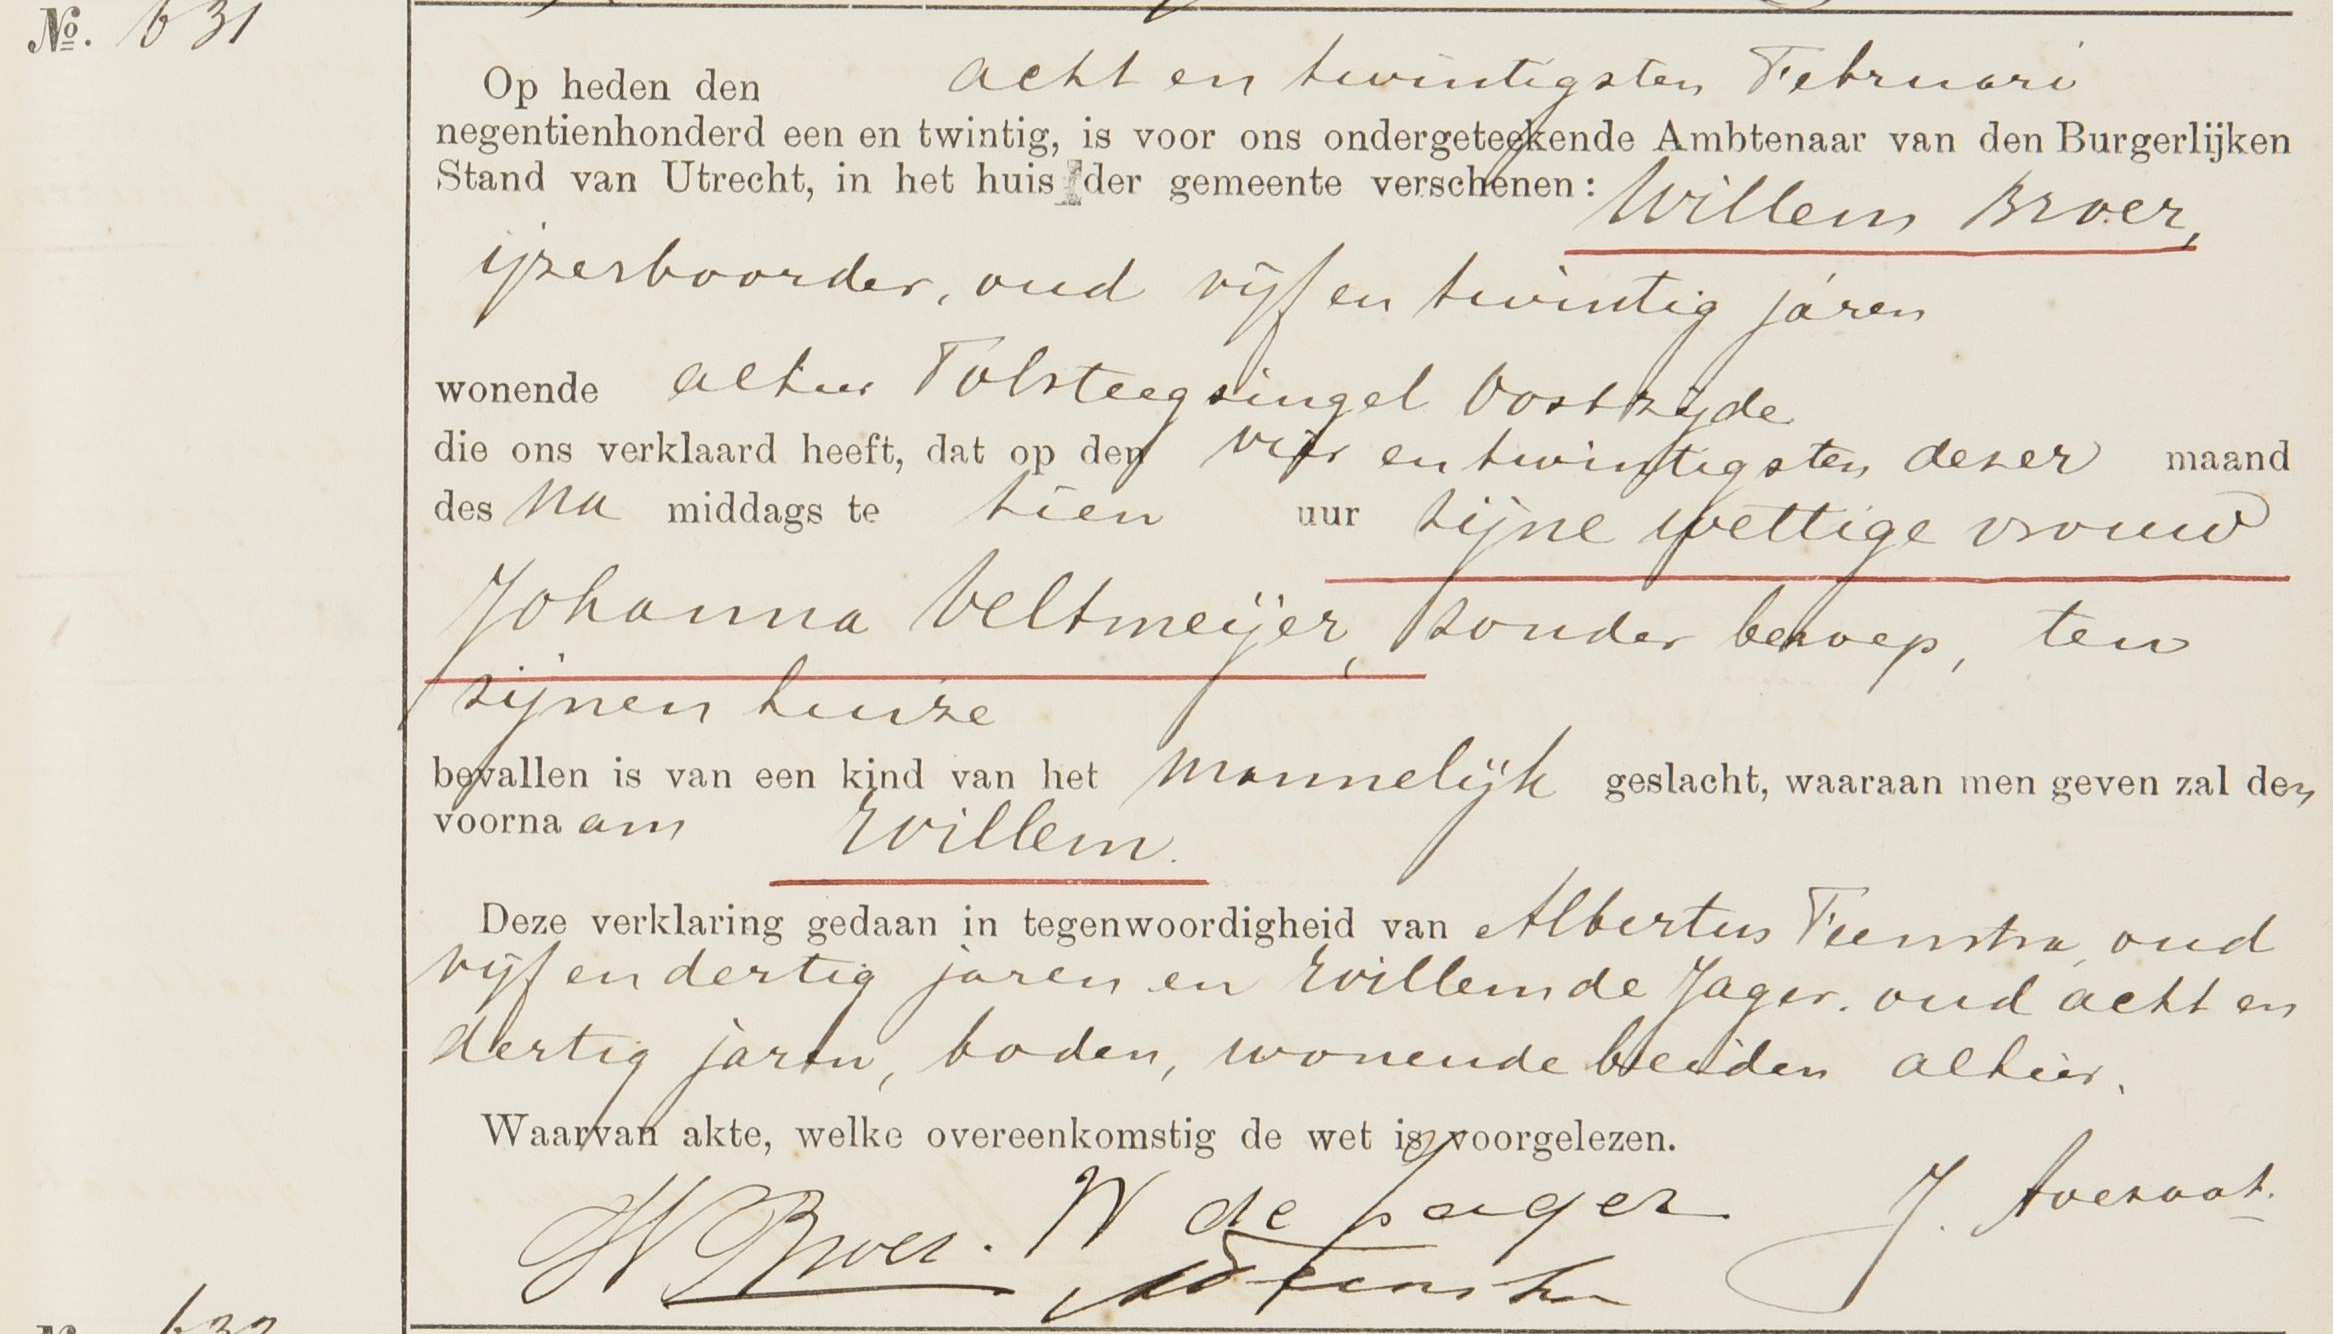 No. 631
Op heden den acht en twintigsten Februari
negentienhonderd een en twintig, is voor ons ondergeteekende Ambtenaar van den Burgerlijken
Stand van Utrecht, in het huis der gemeente verschenen: Willem Broer,
ijzerboorder, oud vijf en twintig jaren
wonende alhier Tolsteegsingel Oostzijde
die ons verklaard heeft, dat op den vier en twintigsten dezer maand
des na middags te tien uur zijne wettige vrouw
Johanna Veltmeijer, zonder beroep, ten
zijnen huize
bevallen is van een kind van het mannelijk geslacht, waaraan men geven zal den
voornaam Willem.
Deze verklaring gedaan in tegenwoordigheid van Albertus Feenstra, oud
vijf en dertig jaren en Willem de Jager. oud acht en
dertig jaren, boden, wonende beiden alhier.
Waarvan akte, welke overeenkomstig de wet is voorgelezen.
W Broer. W de Jager J.
Feenstra
No. 632